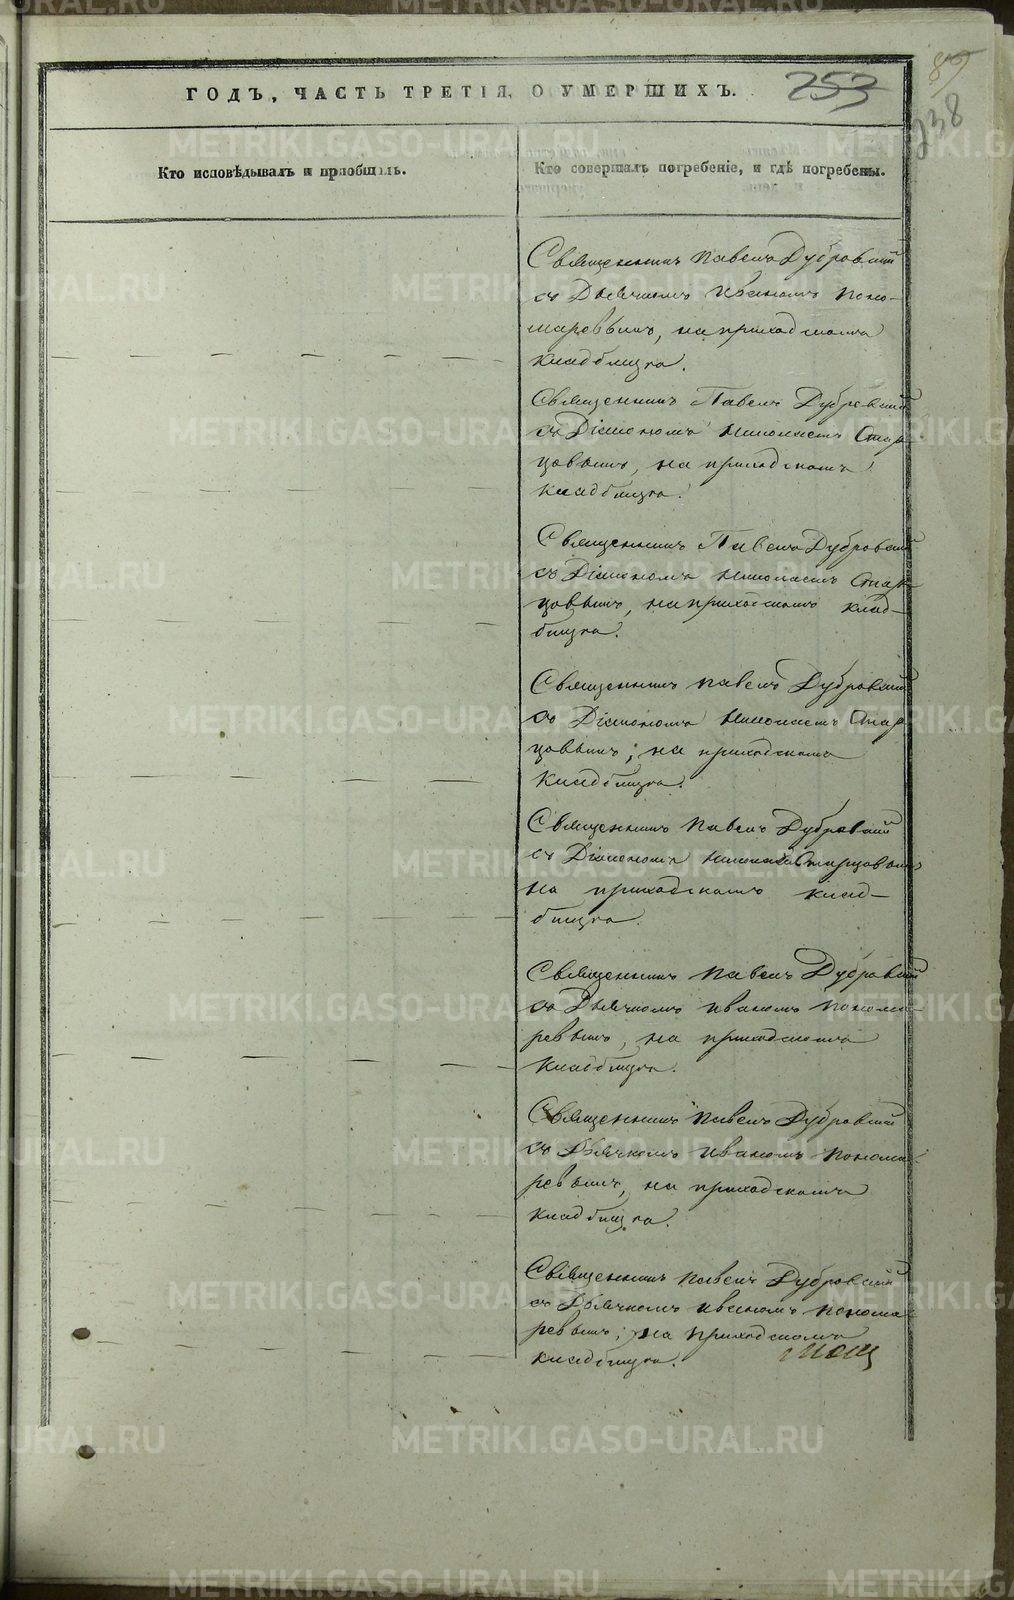 253
85
238
ГОДЪ, ЧАСТЬ ТРЕТІЯ, О УМЕРШИХЪ.
Кто исповѣдывалъ и пріобщалъ.
Кто совершалъ погребеніе, и гдѣ погребены.
Священникъ Павелъ Дубровскій
съ Дьячкомъ Иваномъ Поно-
маревымъ, на приходскомъ
кладбищѣ.
Священникъ Павелъ Дубровскій
съ Діакономъ Николаемъ Стар
цовымъ, на приходскомъ
кладбищѣ.
Священникъ Павелъ Дубровскій
съ Діакономъ Николаемъ Стар
цовымъ, на приходскомъ клад-
бищѣ.
Священникъ Павелъ Дубровскій
съ Діакономъ Николаемъ Стар
цовымъ, на приходскомъ
кладбищѣ.
Священникъ Павелъ Дубровскій
съ Діакономъ Николаемъ Старцовымъ
на приходскомъ клад-
бищѣ.
Священникъ Павелъ Дубровскій
съ Дьячкомъ Иваномъ Понома-
ревымъ, на приходскомъ
кладбищѣ.
Священникъ Павелъ Дубровскій
съ Дьячкомъ Иваномъ Понома-
ревымъ, на приходскомъ
кладбищѣ.
Священникъ Павелъ Дубровскій
съ Дьячкомъ Иваномъ Понома
ревымъ, на приходскомъ
кладбищѣ.
METRIKI.GASO-URAL.RU